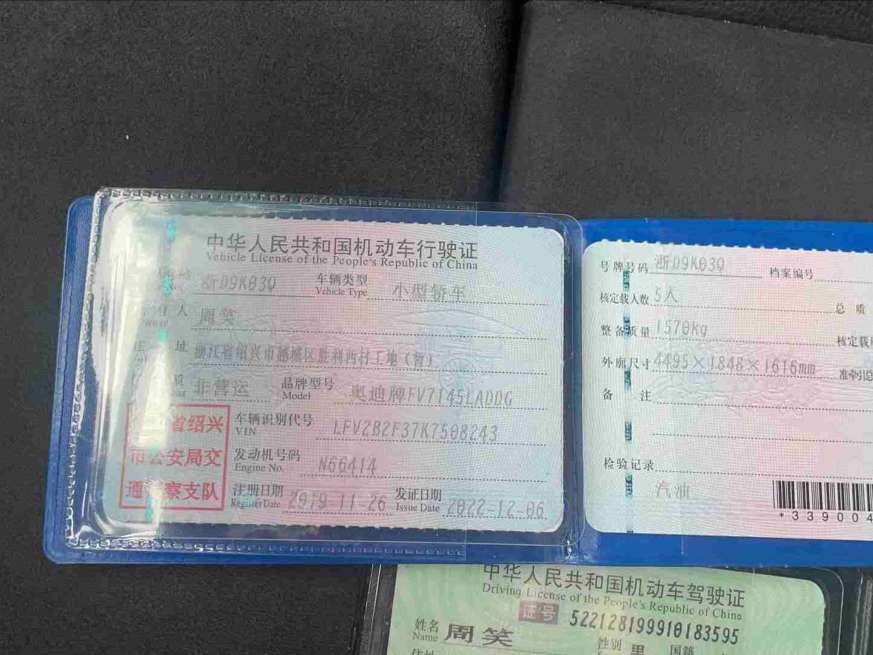 中华人民共和国机动车行驶证
Vehicle License of the People's Republic of China
浙D9K03Q 车辆类型 Vehicle Type 小型轿车
人 周笑
址 浙江省绍兴市越城区胜利西村工地(暂)
非营运 品牌型号 Model 奥迪牌FV7145LADDG
省绍兴
市公安局交
通警察支队
车辆识别代号 VIN LFV2B2F37K7508243
发动机号码 Engine No. N66414
注册日期 Register Date 2019-11-26 发证日期 Issue Date 2022-12-06
号牌号码 浙D9K03Q 档案编号
核定载人数 5人 总质
整备质量 1570kg 核定载
外廓尺寸 4495×1848×1616mm 准牵引总
备注
检验记录
汽油
*339004
中华人民共和国机动车驾驶证
Driving License of the People's Republic of China
证号 522128199910183595
姓名 Name 周笑 性别 男 国籍